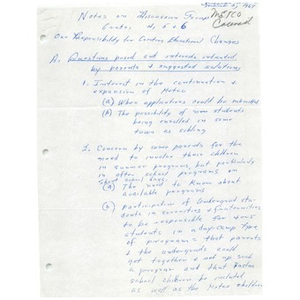 Notes on Discussion Group
Grades 4, 5 & 6
METCO
Our Responsibility for Creative Educational Changes
A. Questions posed and interests indicated
by parents & suggested solutions
1. Interest in the continuation &
expansion of Metco
(a) When applications could be extended
(b) The possibility of some students
being enrolled in same
town as sibling
2. Concern by some parents for the
need to involve these children
in summer programs, but particularly
in after school programs on
school days
(a) The need to know about
available programs
(b) Participation of Undergrad stu-
dents in
to be responsible for some
students in a day camp Type
of programs that parents
& the undergrads could
get together & set up such
a program and that Boston
school children be included
as well as the Metco children